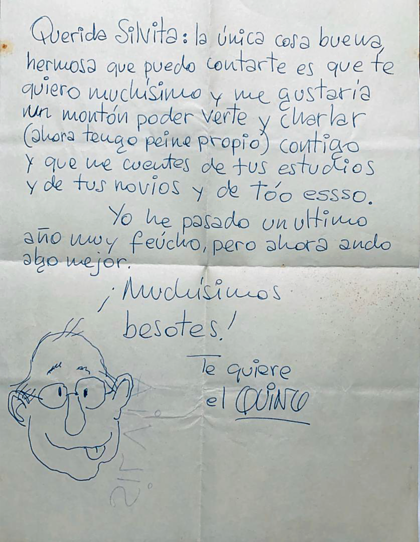 Querida Silvita: la única cosa buena,
hermosa que puedo contarte es que te
quiero muchísimo y me gustaría
un montón poder verte y charlar
(ahora tengo peine propio) contigo
y que me cuentes de tus estudios
y de tus novios y de tóo essso.
Yo he pasado un ultimo
año muy feúcho, pero ahora ando
algo mejor.
¡Muchísimos
besotes!
Te quiere
el QUINO